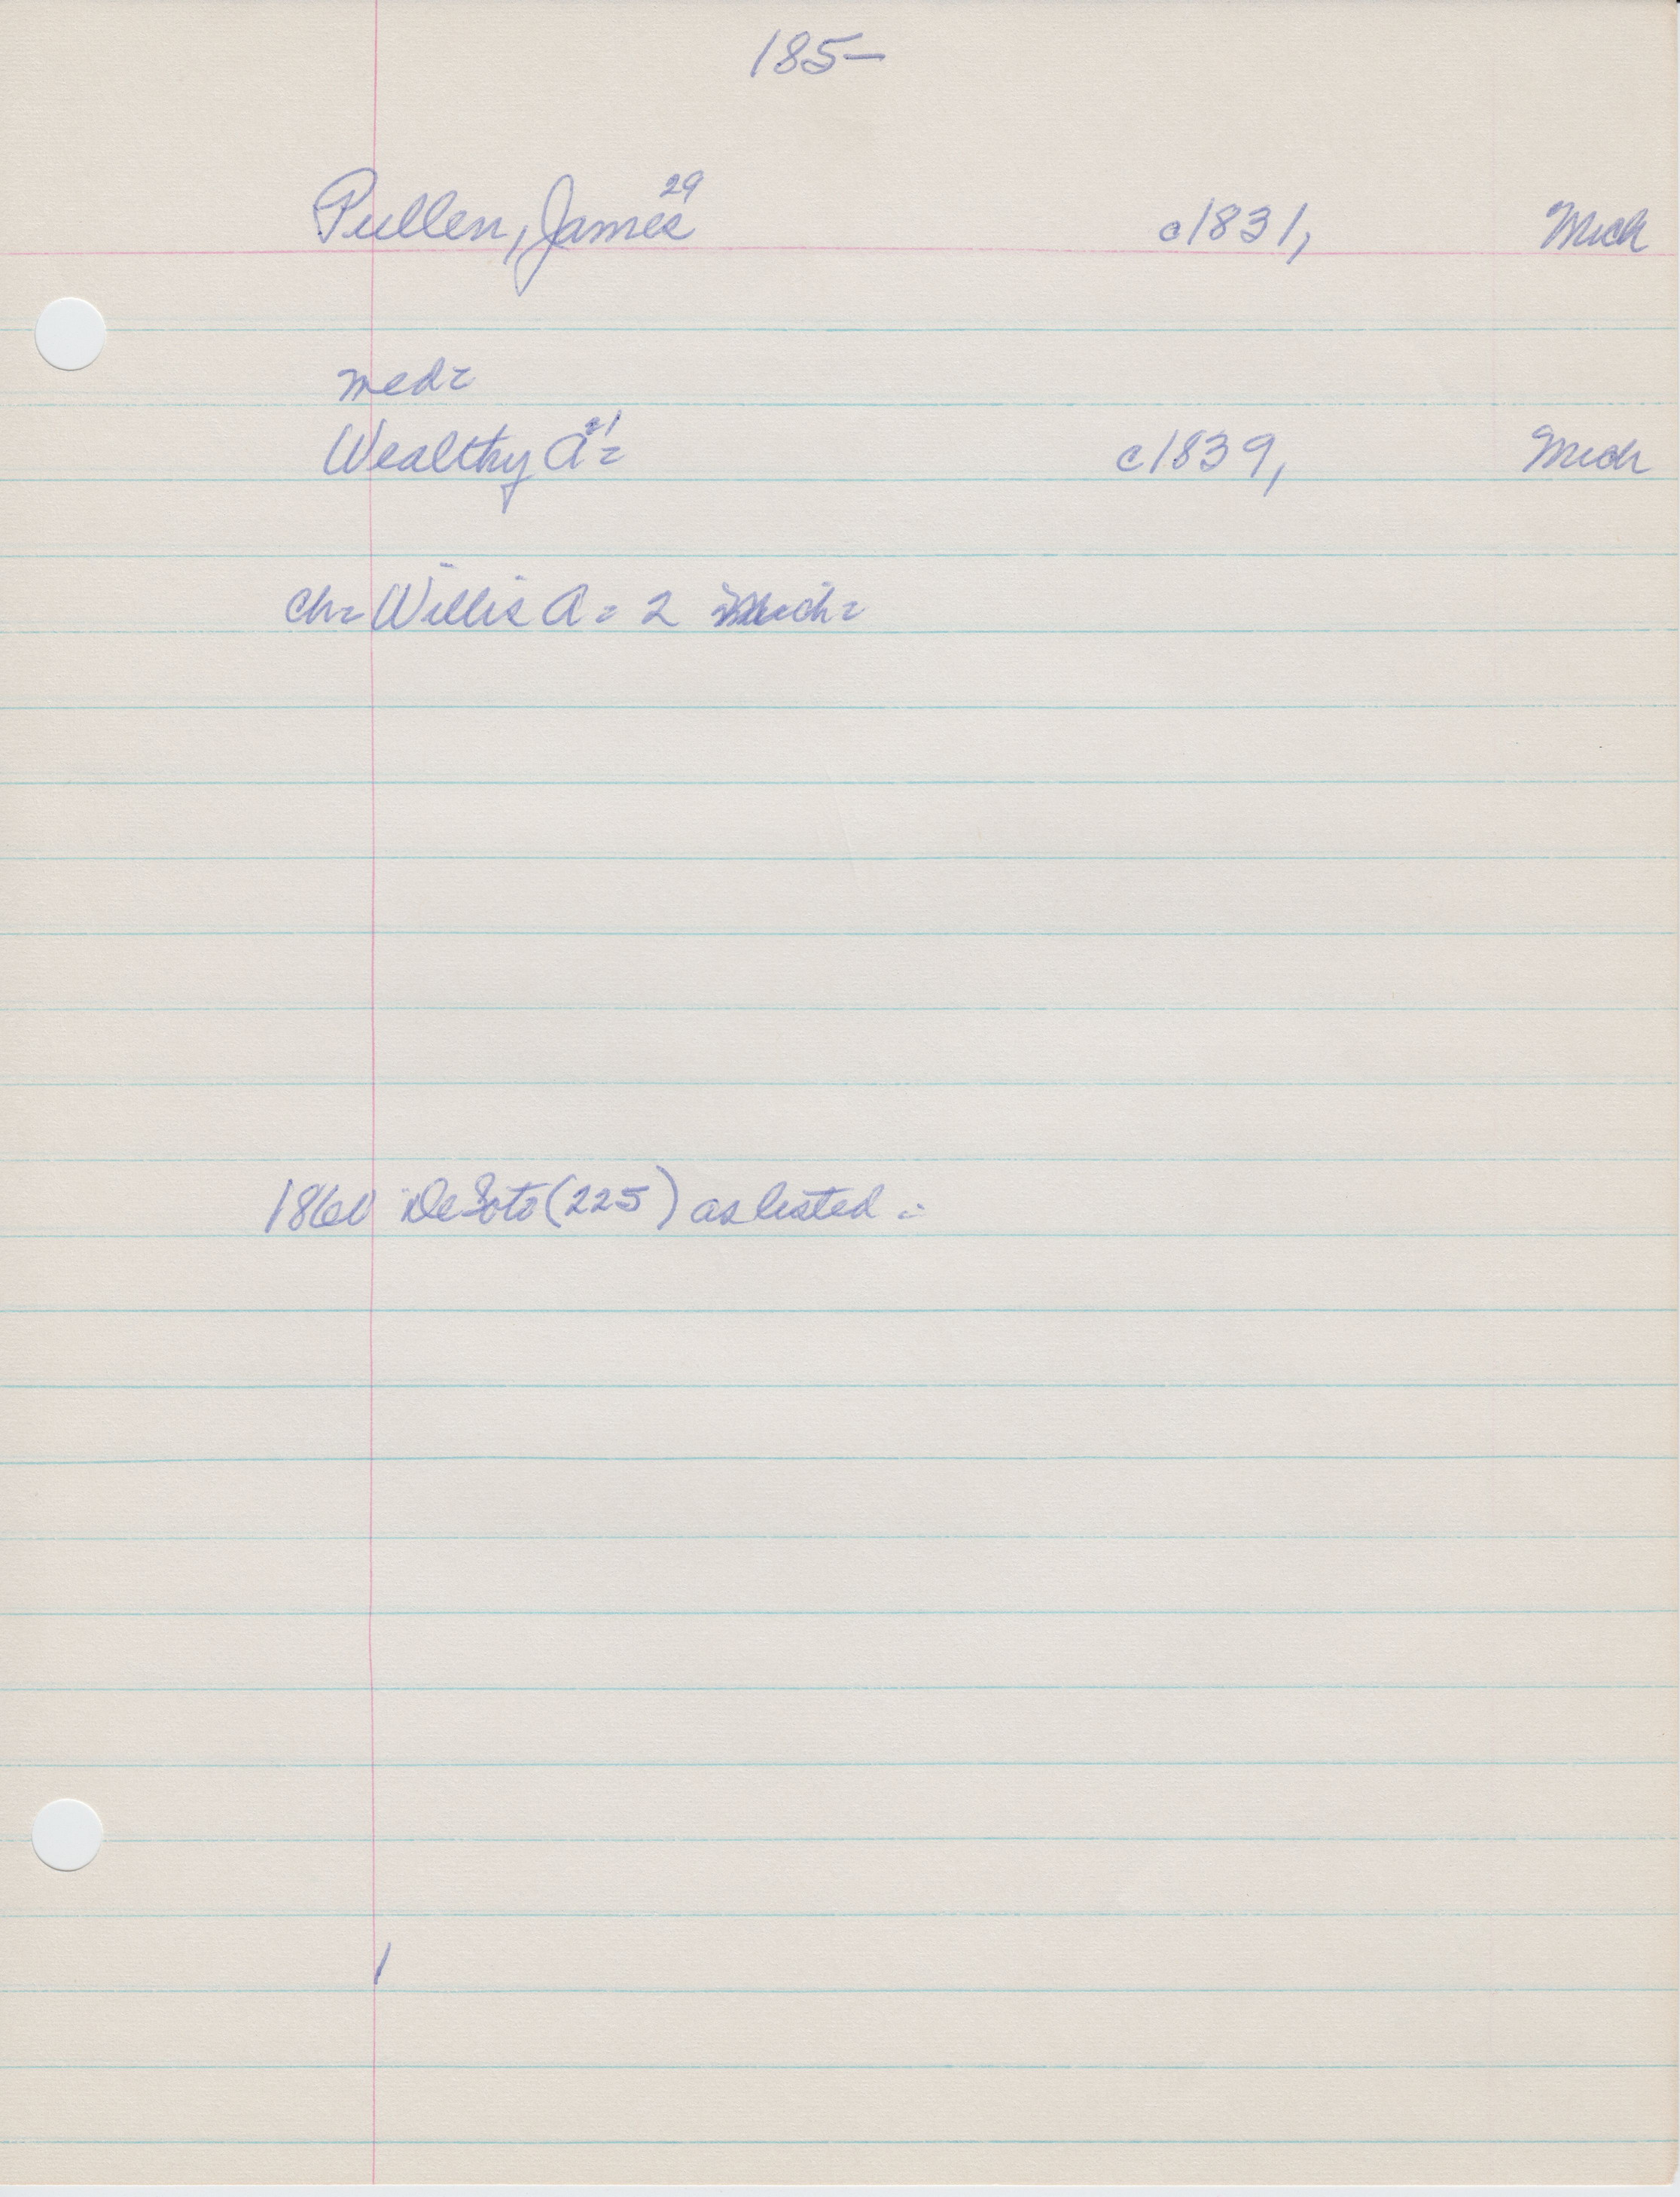 185-
Pullen, James 29 c1831, Mich
med=
Wealthy A 21 = c1839, Mich
ch= Willis A = 2 Mich=
1860 DeSoto (225) as listed =
1